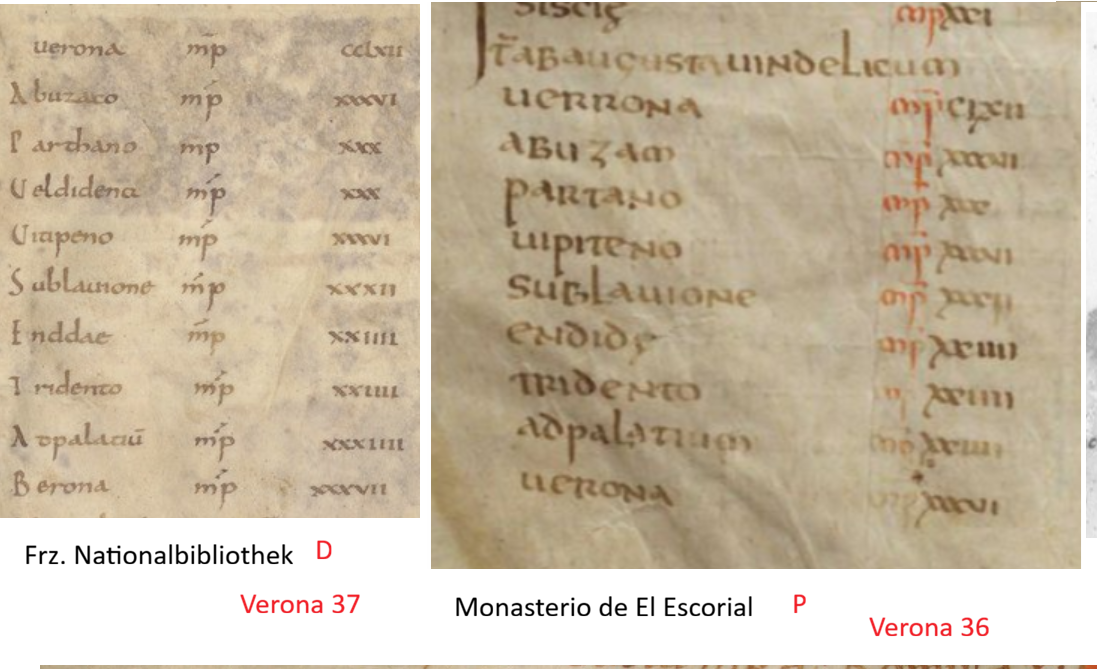 uerona m̄p cclxii
Abuzaco m̄p xxxvi
Parthano m̄p xxx
Ueldidena m̄p xxx
Uitipeno m̄p xxxvi
Sublauione m̄p xxxii
Enddae m̄p xxiiii
Tridento m̄p xxiiii
Adpalatiū m̄p xxxiiii
Berona m̄p xxxvii
Frz. Nationalbibliothek D
Verona 37
siscię mp xxi
IT̄ AB augusta uindelicum
uerrona mp clxii
abuzam mp xxxvi
partano mp xxx
uipiteno mp xxxvi
sublauione mp xxxii
endidę mp xxiiii
tridento xxiiii
adpalatium mp xxiiii
uerona mp xxxvi
Monasterio de El Escorial P
Verona 36